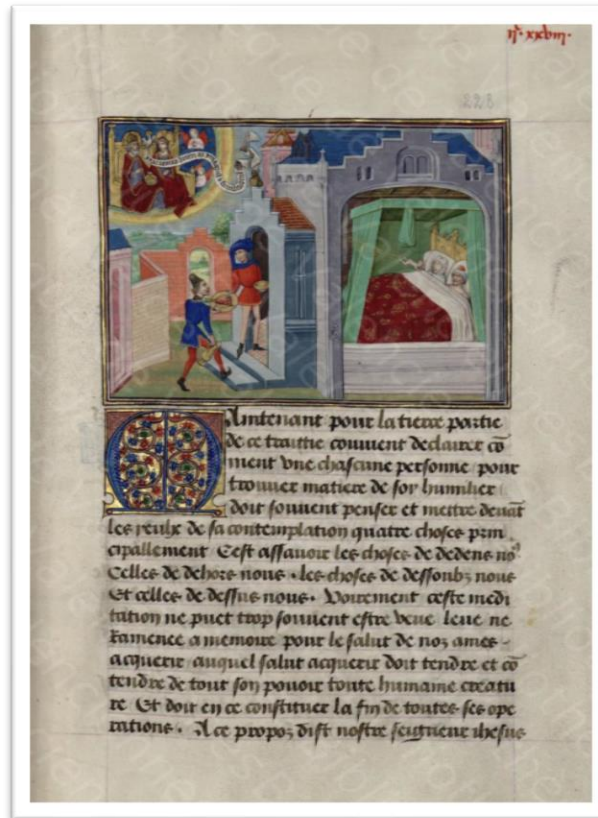 iiᶜ. xxviii.
223
Maintenant pour la tierce partie
de ce traittie convient declairer cō
ment vne chascune personne pour
trouuer matiere de soy humilier
doit souuent penser et mettre deuāt
les yeulx de sa contemplation quatre choses prin
cipallement Cest assauoir les choses de dedens noꝰ
Celles de dehors nous. les choses de dessoubz nous
Et celles de dessus nous. Voirement ceste medi
tation ne puet trop souuent estre veue leue ne
ramenee a memoire pour le salut de noz ames
acquerir auquel salut acquerir doit tendre et cō
tendre de tout son pouoir toute humaine creatu
re Et doit en ce constituer la fin de toutes ses ope
rations. A ce propoz dist nostre seigneur ihesus